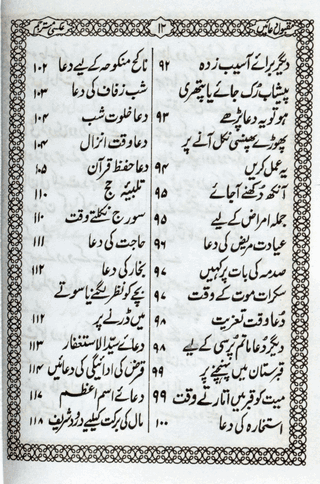 مقبول دعائیں
۱۲
عکسی مترجم
دیگر برائے آسیب زدہ ۹۲
پیشاب رک جائے یا پتھری
ہو تو یہ دعا پڑھے ۹۳
پھوڑے پھنسی نکل آنے پر
یہ عمل کریں ۹۴
آنکھ دکھنے آجائے ۹۵
جملہ امراض کے لیے ۹۵
عیادت مریض کی دعا ۹۶
صدمہ کی بات پر کہیں ۹۷
سکرات موت کے وقت ۹۷
دعا وقت تعزیت ۹۸
دیگر دعا ماتم پرسی کے لیے ۹۸
قبرستان میں پہنچنے پر ۹۹
میت کو قبر میں اتارنے وقت ۹۹
استخارہ کی دعا ۱۰۰
ناکح منکوحہ کے لیے دعا ۱۰۲
شب زفاف کی دعا ۱۰۳
دعا خلوت شب ۱۰۴
دعا وقت انزال ۱۰۴
دعا حفظ قرآن ۱۰۵
تلبیۂ حج ۱۱۰
سورج نکلتے وقت ۱۱۰
حاجت کی دعا ۱۱۱
بخار کی دعا ۱۱۲
بچے کو نظر لگنے یا سوتے
میں ڈرنے پر ۱۱۲
دعائے سید الاستغفار ۱۱۳
قرض کی ادائیگی کی دعائیں ۱۱۴
دعائے اسم اعظم ۱۱۷
مال کی برکت کیلیے درود شریف ۱۱۸